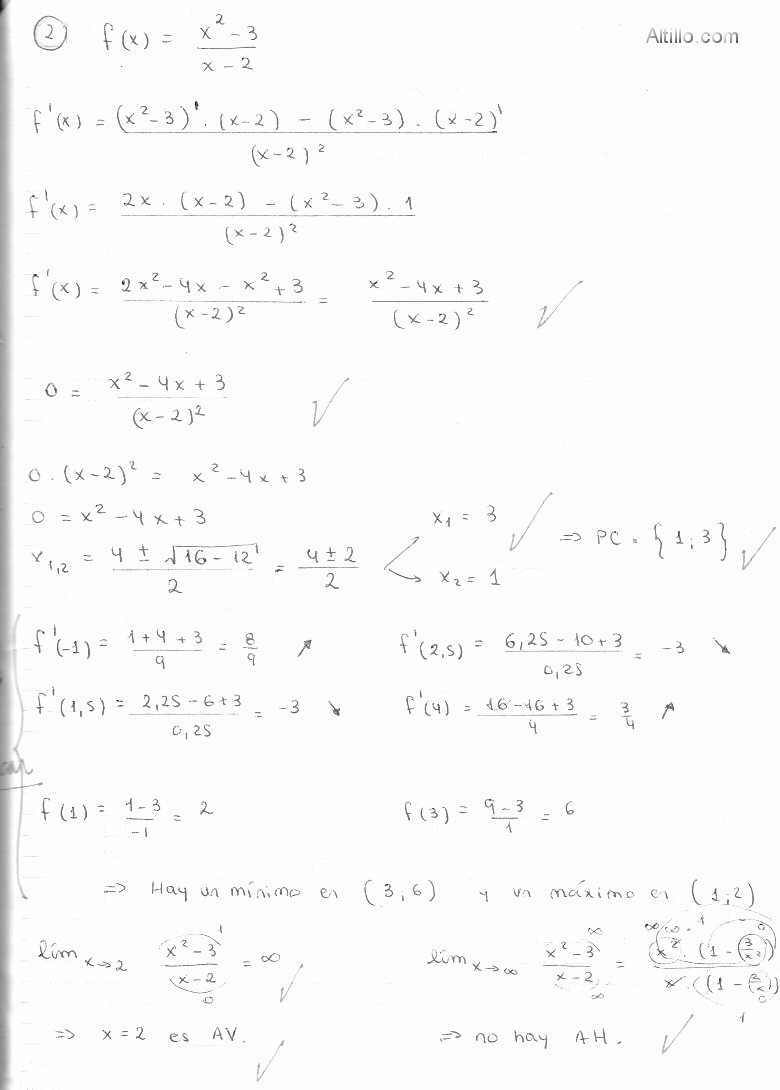 2 f(x) = (x² - 3)/(x - 2)
Altillo.com
f'(x) = ((x² - 3)' . (x - 2) - (x² - 3) . (x - 2)')/(x - 2)²
f'(x) = (2x . (x - 2) - (x² - 3) . 1)/(x - 2)²
f'(x) = (2x² - 4x - x² + 3)/(x - 2)² = (x² - 4x + 3)/(x - 2)² ✓
0 = (x² - 4x + 3)/(x - 2)² ✓
0 . (x - 2)² = x² - 4x + 3
0 = x² - 4x + 3
x₁,₂ = (4 ± √(16 - 12))/2 = (4 ± 2)/2
x₁ = 3 ✓
x₂ = 1
⇒ PC = {1; 3} ✓
f'(-1) = (1 + 4 + 3)/9 = 8/9 ↗
f'(2,5) = (6,25 - 10 + 3)/0,25 = -3 ↘
f'(1,5) = (2,25 - 6 + 3)/0,25 = -3 ↘
f'(4) = (16 - 16 + 3)/4 = 3/4 ↗
f(1) = (1 - 3)/-1 = 2
f(3) = (9 - 3)/1 = 6
⇒ Hay un mínimo en (3; 6) y un máximo en (1; 2)
lím x→2 (x² - 3)/(x - 2) = ∞ ✓
1
0
⇒ x = 2 es AV. ✓
lím x→∞ (x² - 3)/(x - 2) = (x² . (1 - (3/x²)))/(x . (1 - (2/x)))
∞
∞
⇒ no hay AH. ✓